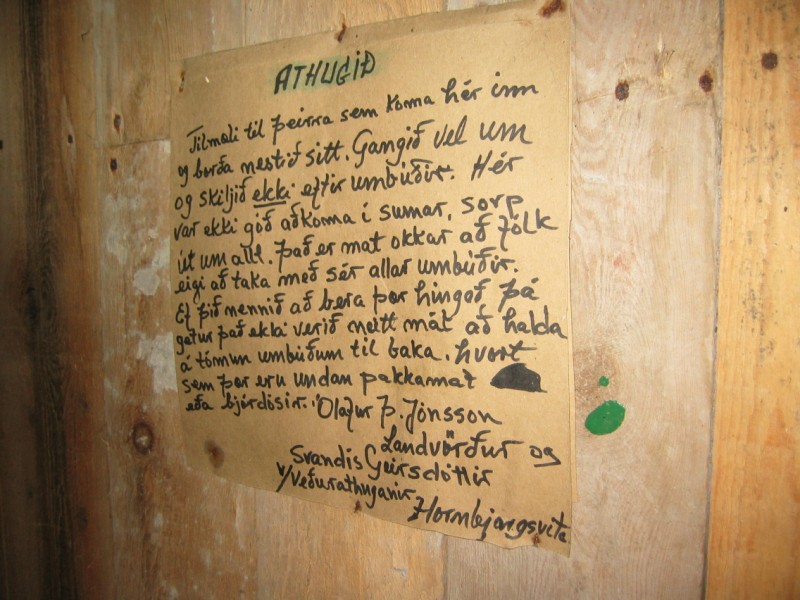 ATHUGIÐ
Tilmæli til þeirra sem koma hér inn
og borða nestið sitt. Gangið vel um
og skiljið ekki eftir umbúðir. Hér
var ekki góð aðkoma í sumar, sorp
út um allt. Það er mat okkar að fólk
eigi að taka með sér allar umbúðir.
Ef þið nennið að bera þær hingað þá
getur það ekki verið neitt mál að halda
á tómum umbúðum til baka. hvort
sem þær eru undan pakkamat
eða bjórdósir. Ólafur Þ. Jónsson
Landvörður og
Svandís Geirsdóttir
v/Veðurathuganir
Hornbjargsvita